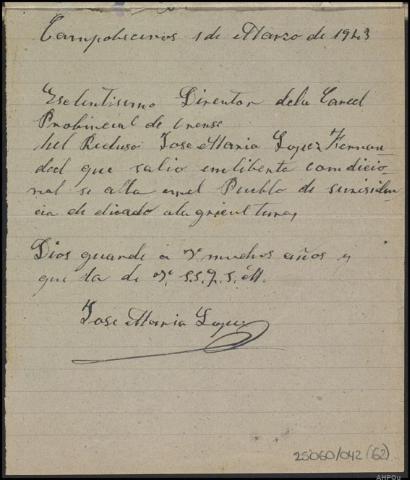 Campobeceros 1 de Marzo de 1943
Eselentisimo Director dela Carcel
Probincial de Orense
hel Recluso Jose Maria Lopez Fernan
dez que salio en liberta condicio
nal se alla en el Pueblo de su residen
cia de dicado ala gricultura,
Dios guarde a V. muchos años y
que da de V. S.S.Q.S.M.
Jose Maria Lopez
25060/042 (62)
AHPOu